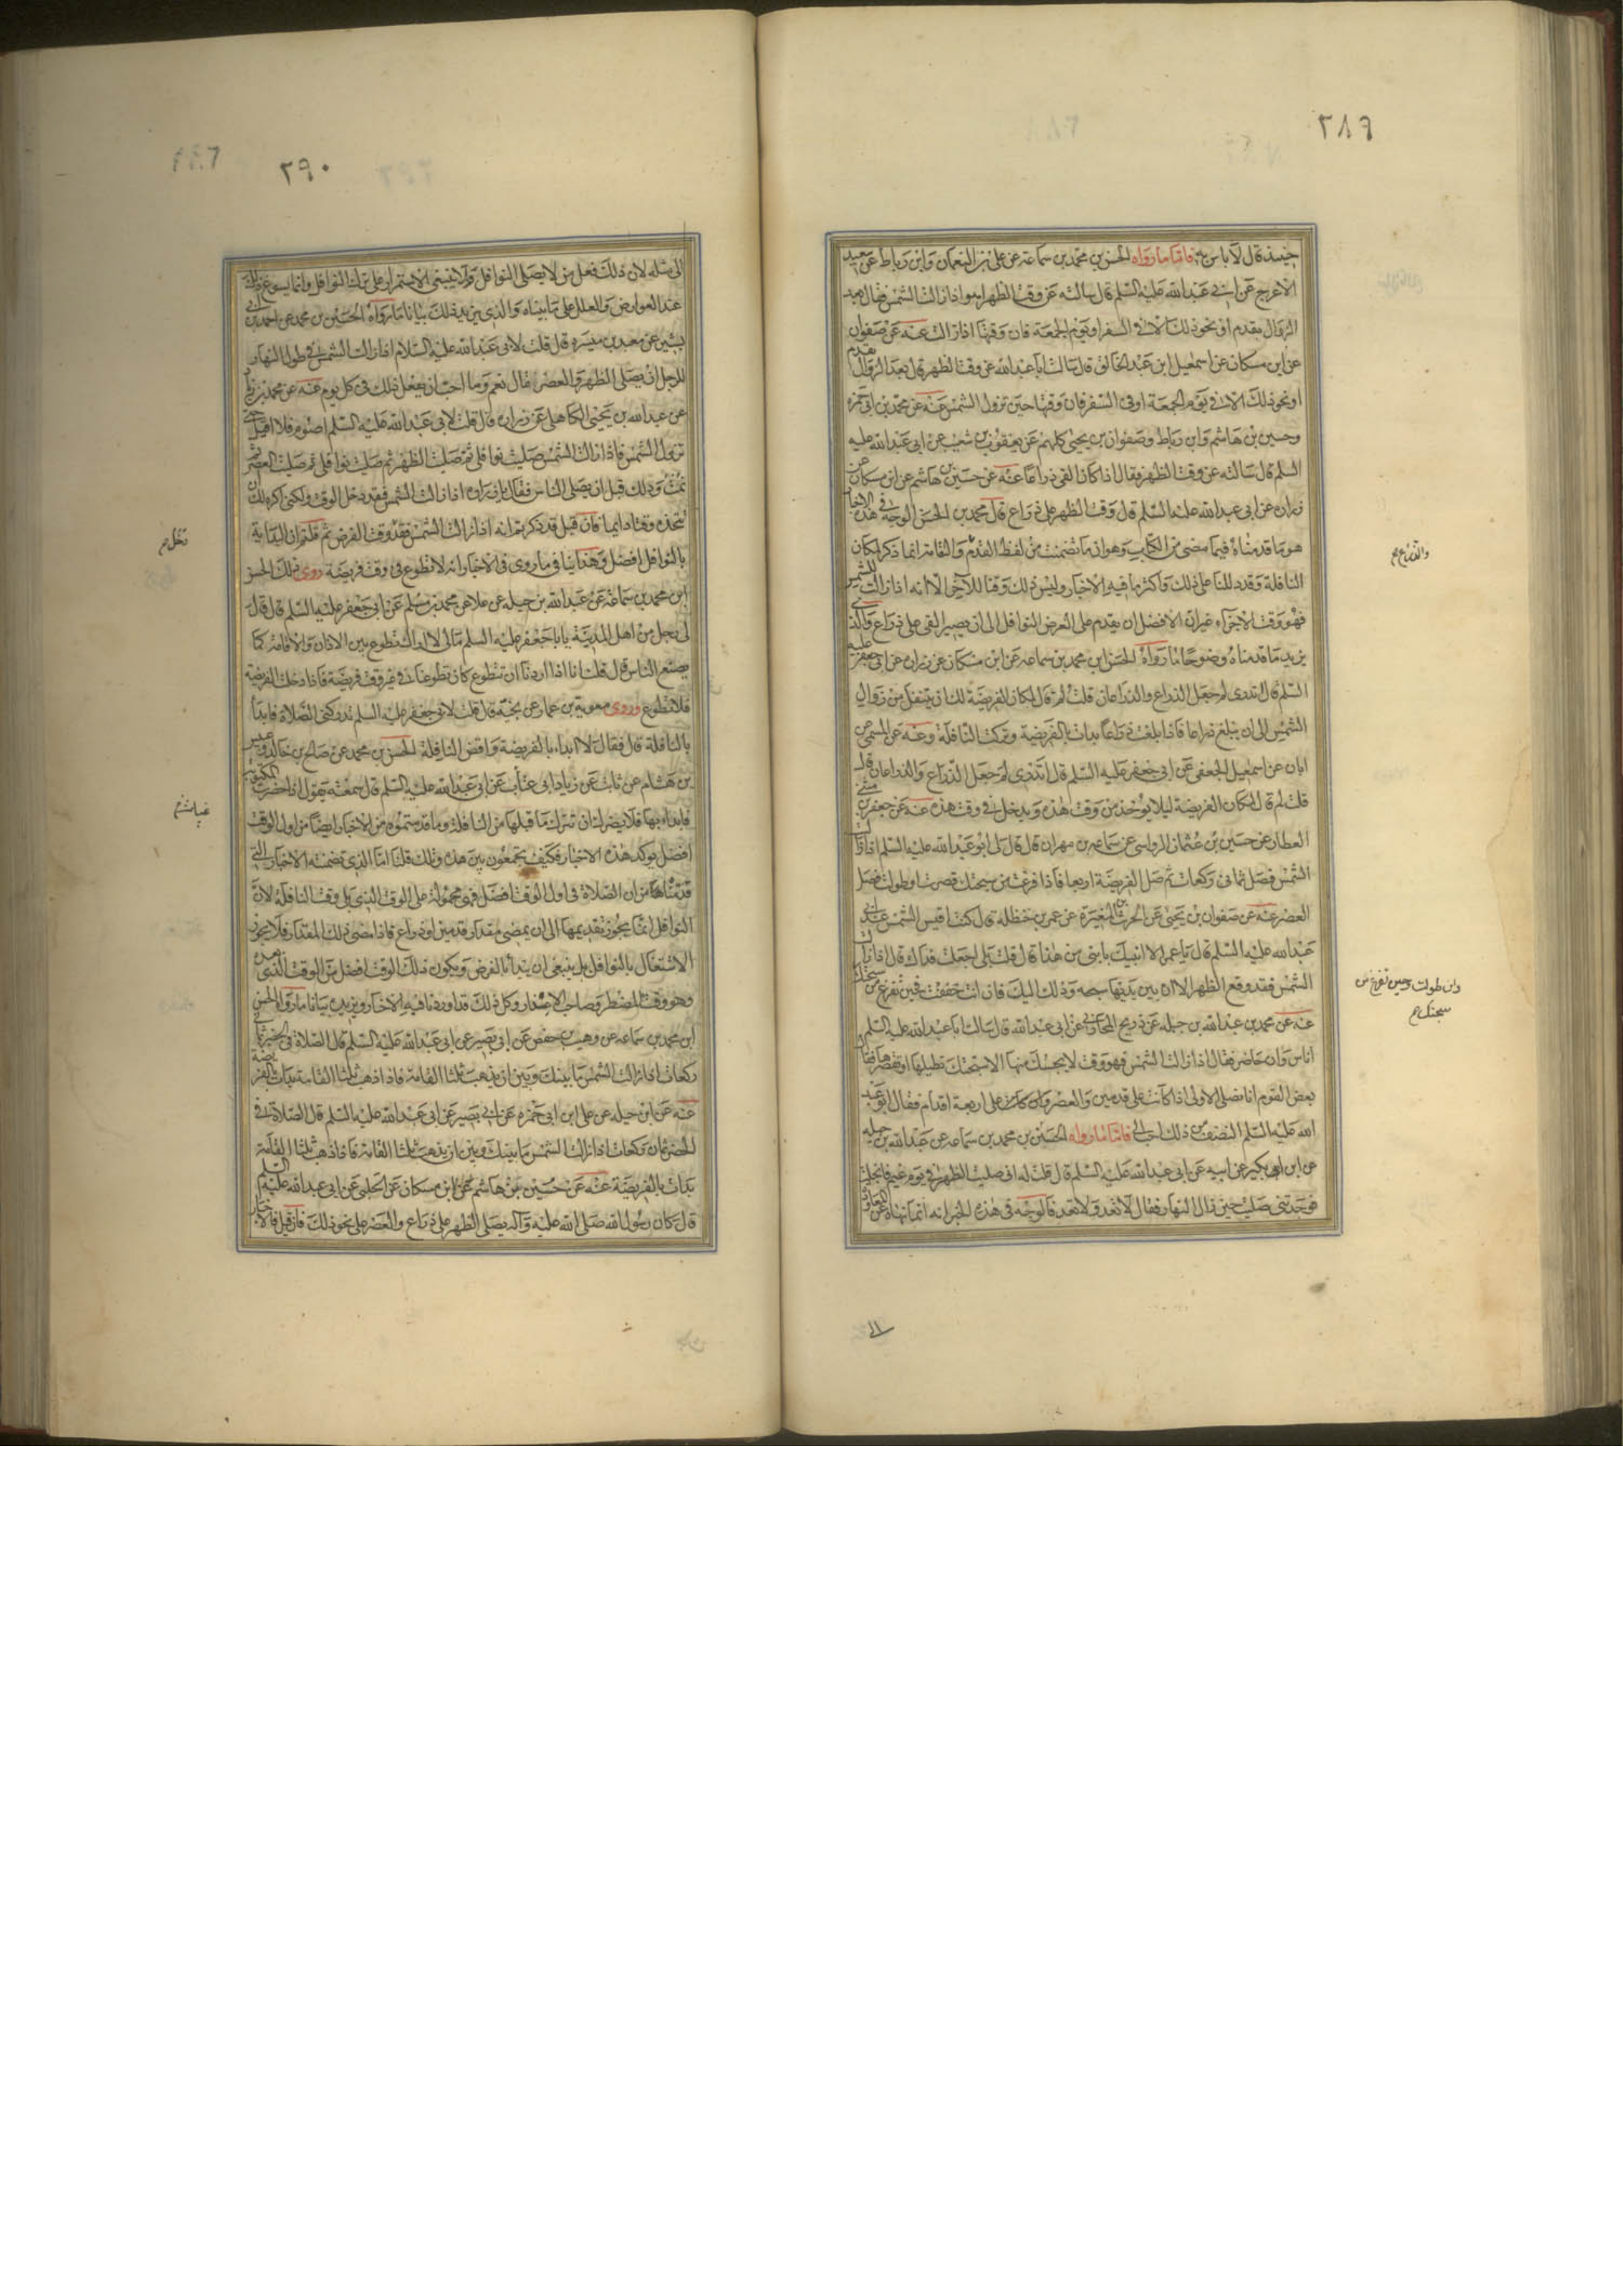 ٢٨٩
حينئذ قال لا باس به فاما ما رواه الحسن بن محمد بن سماعه عن علي بن النعمان وابن رباط عن سعيد
الاعرج عن ابي عبد الله عليه السلم قال سالته عن وقت الظهر اهو اذا زالت الشمس فقال بعد
الزوال بقدم او نحو ذلك الا في السفر او يوم الجمعة فان وقتها اذا زالت عنه عن صفوان
عن ابن مسكان عن اسمعيل ابن عبد الخالق قال سالت ابا عبد الله عن وقت الظهر قال بعد الزوال بقدم
او نحو ذلك الا في يوم الجمعة او في السفر فان وقتها حين تزول الشمس عنه عن محمد بن ابي حمزه
وحسين بن هاشم وابن رباط وصفوان بن يحيى كلهم عن يعقوب بن شعيب عن ابي عبد الله عليه
السلم قال سالته عن وقت الظهر فقال اذا كان الفي ذراعا عنه عن حسين بن هاشم عن ابن مسكان عن
زراره عن ابي عبد الله عليه السلم قال وقت الظهر على ذراع قال محمد بن الحسن الوجه في هذه الاخبار
هو ما قدمناه فيما مضى من الكتاب وهو ان ما تضمنت من لفظ القدم والقامة انما ذكر لمكان
النافلة وقد دللنا على ذلك واكثر ما فيه الاخبار وليس ذلك وقتا للاجزا لانه اذا زالت الشمس
فهو وقت الاجزاء غير ان الافضل ان يقدم على الفرض النوافل الى ان يصير الفي على ذراع والذي
يزيد ما قدمناه وضوحا ما رواه الحسن ابن محمد بن سماعه عن ابن مسكان عن زراره عن ابي جعفر عليه
السلم قال اتدرى لم جعل الذراع والذراعان قلت لم قال لمكان الفريضة لك ان يتنفل من زوال
الشمس الى ان يبلغ ذراعا فاذا بلغت ذراعا بدات بالفريضة وتركت النافلة وعنه عن الميثمي عن
ابان عن اسمعيل الجعفي عن ابي جعفر عليه السلم قال اتدرى لم جعل الذراع والذراعان قال
قلت لم قال لمكان الفريضة ليلا يوخذ من وقت هذه ويدخل في وقت هذه عنه عن جعفر بن مثنى
العطار عن حسين بن عثمان الرواسي عن سماعه بن مهران قال قال لي ابو عبد الله عليه السلم اذا زالت
الشمس فصل ثماني ركعات ثم صل الفريضة اربعا فاذا فرغت من سبحتك قصرت او طولت فصل
العصر عنه عن صفوان بن يحيى عن الحرث بن المغيرة عن عمر بن حنظله قال كنت اقيس الشمس عند ابي
عبد الله عليه السلم قال يا عمر الا انبيك بابين من هذا قال قلت بلى جعلت فداك قال اذا زالت
الشمس فقد وقع الظهر الا ان بين يديها سبحه وذلك اليك فان انت خففت فحين تفرغ من سبحتك
عنه عن محمد بن عبد الله بن جبله عن ذريح المحاربي عن ابي عبد الله قال سالت ابا عبد الله عليه السلم
اناس وان حاضر فقال اذا زالت الشمس فهو وقت لا يحبسك منها الا سبحتك تطيلها او تقصرها فقال
بعض القوم انا نصلي الاولى اذا كانت على قدمين والعصر وان كانت على اربعة اقدام فقال ابو عبد
الله عليه السلم النصف من ذلك احب الي فاما ما رواه الحسن بن محمد بن سماعه عن عبد الله بن جبله
عن ابن بكير عن ابيه عن ابي عبد الله عليه السلم قال قلت له اني صليت الظهر في يوم غيم فانجلت
فوجدتني صليت حين زال النهار فقال لا تعد ولا تعد فالوجه في هذه الخبر انه انما نهاه عن المعاودة
والذراع
وان طولت فحين تفرغ من
سبحتك
الى
٢٩٠
الى مثله لان ذلك فعل من لا يصلي النوافل ولا ينبغي الاستمرار على ترك النوافل وانما يسوغ ذلك
عند العوارض والعلل على ما بيناه والذي يزيد ذلك بيانا ما رواه الحسين بن محمد عن احمد بن ابي
بشير عن معبد بن ميسره قال قلت لابي عبد الله عليه السلام اذا زالت الشمس في طول النهار
للرجل ان يصلي الظهر والعصر قال نعم وما احب ان يفعل ذلك في كل يوم عنه عن محمد بن زياد
عن عبد الله بن يحيى الكاهلي عن زراره قال قلت لابي عبد الله عليه السلم اصوم فلا اقيل حتى
تزول الشمس فاذا زالت الشمس صليت نوافلي ثم صليت الظهر ثم صليت نوافلي ثم صليت العصر ثم
نمت وذلك قبل ان يصلي الناس فقال يا زراره اذا زالت الشمس فقد دخل الوقت ولكني اكره لك ان
تتخذه وقتا دايما فان قيل قد ذكرتم انه اذا زالت الشمس فقد وقت الفرض ثم قلتم ان البداية
بالنوافل افضل وهذا ينافي ما روى في الاخبار انه لا تطوع في وقت فريضة روى ذلك الحسن
ابن محمد بن سماعة عن عبد الله بن جبله عن علا عن محمد بن مسلم عن ابي جعفر عليه السلم قال قال
لي رجل من اهل المدينة يا با جعفر عليه السلم مالي لا اراك تتطوع بين الاذان والاقامة كما
يصنع الناس قال قلت انا اذا اردنا ان نتطوع كان تطوعنا في غير وقت فريضة فاذا دخلت الفريضة
فلا تطوع وروى معوية بن عمار عن نجيه قال قلت لابي جعفر عليه السلم تدركني الصلاة فابدأ
بالنافلة قال فقال لا ابداء بالفريضة واقض النافلة الحسن بن محمد عن صالح بن خالد وعبيس
بن هشام عن ثابت عن زياد ابي عتاب عن ابي عبد الله عليه السلم قال سمعته يقول اذا حضرت المكتوبة
فابداء بها فلا يضرك ان تترك ما قبلها من النافلة وما قدمتموه من الاخبار ايضا من اول الوقت
افضل يوكد هذه الاخبار فكيف تجمعون بين هذه وتلك قلنا اما الذي تضمنته الاخبار التي
قدمناها من ان الصلاة في اول الوقت افضل فهي محمولة على الوقت الذي يلي وقت النافلة لان
النوافل انما يجوز تقديمها الى ان يمضي مقدار قدمين او ذراع فاذا مضى ذلك المقدار فلا يجوز
الاشتغال بالنوافل بل ينبغي ان يبدأ بالفرض ويكون ذلك الوقت افضل من الوقت الذي بعده
وهو وقت المضطر وصاحب الاعذار وكل ذلك قد اوردنا فيه الاخبار ويزيده بيانا ما رواه الحسن
ابن محمد بن سماعه عن وهيب بن حفص عن ابي بصير عن ابي عبد الله عليه السلم قال الصلاة في الحضر ثماني
ركعات اذا زالت الشمس ما بينك وبين ان يذهب ثلثا القامة فاذا ذهب ثلثا القامة بدات بالفريضة
عنه عن ابن جبله عن علي ابن ابي حمزه عن ابي بصير عن ابي عبد الله عليه السلم قال الصلاة في
الحضر ثمان ركعات اذا زالت الشمس ما بينك وبين ان يذهب ثلثا القامة فاذا ذهب ثلثا القامة
بدات بالفريضة عنه عن حسين بن هاشم عن ابن مسكان عن الحلبي عن ابي عبد الله عليه السلم
قال كان رسول الله صلى الله عليه وآله يصلي الظهر على ذراع والعصر على نحو ذلك فان قيل فالاخبار
دخل